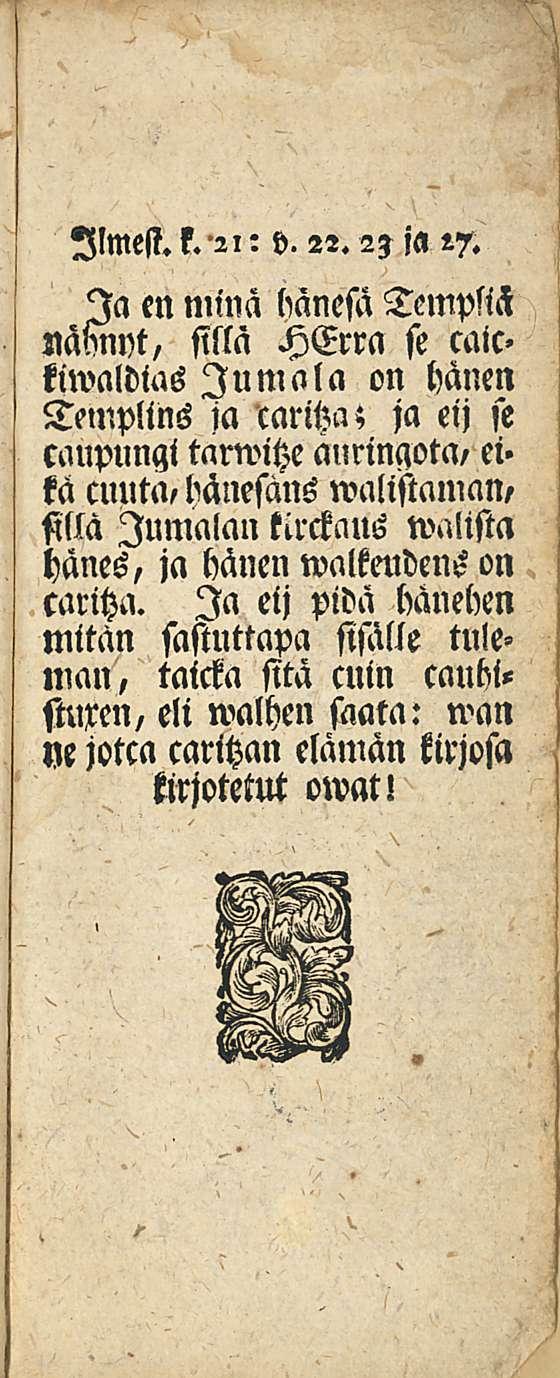 Ilmest. k. 21: v. 22. 23 ja 27.
Ja en minä hänesä Templiä
nähnyt, sillä HErra se caic-
kiwaldias Jumala on hänen
Templins ja caritza; ja eij se
caupungi tarwitze auringota, ei-
kä cuuta, hänesäns walistaman,
sillä Jumalan kirckaus walista
hänes, ja hänen walkeudens on
caritza. Ja eij pidä hänehen
mitän sastuttapa sisälle tule-
man, taicka sitä cuin cauhi-
stuxen, eli walhen saata: wan
ne jotca caritzan elämän kirjosa
kirjotetut owat!